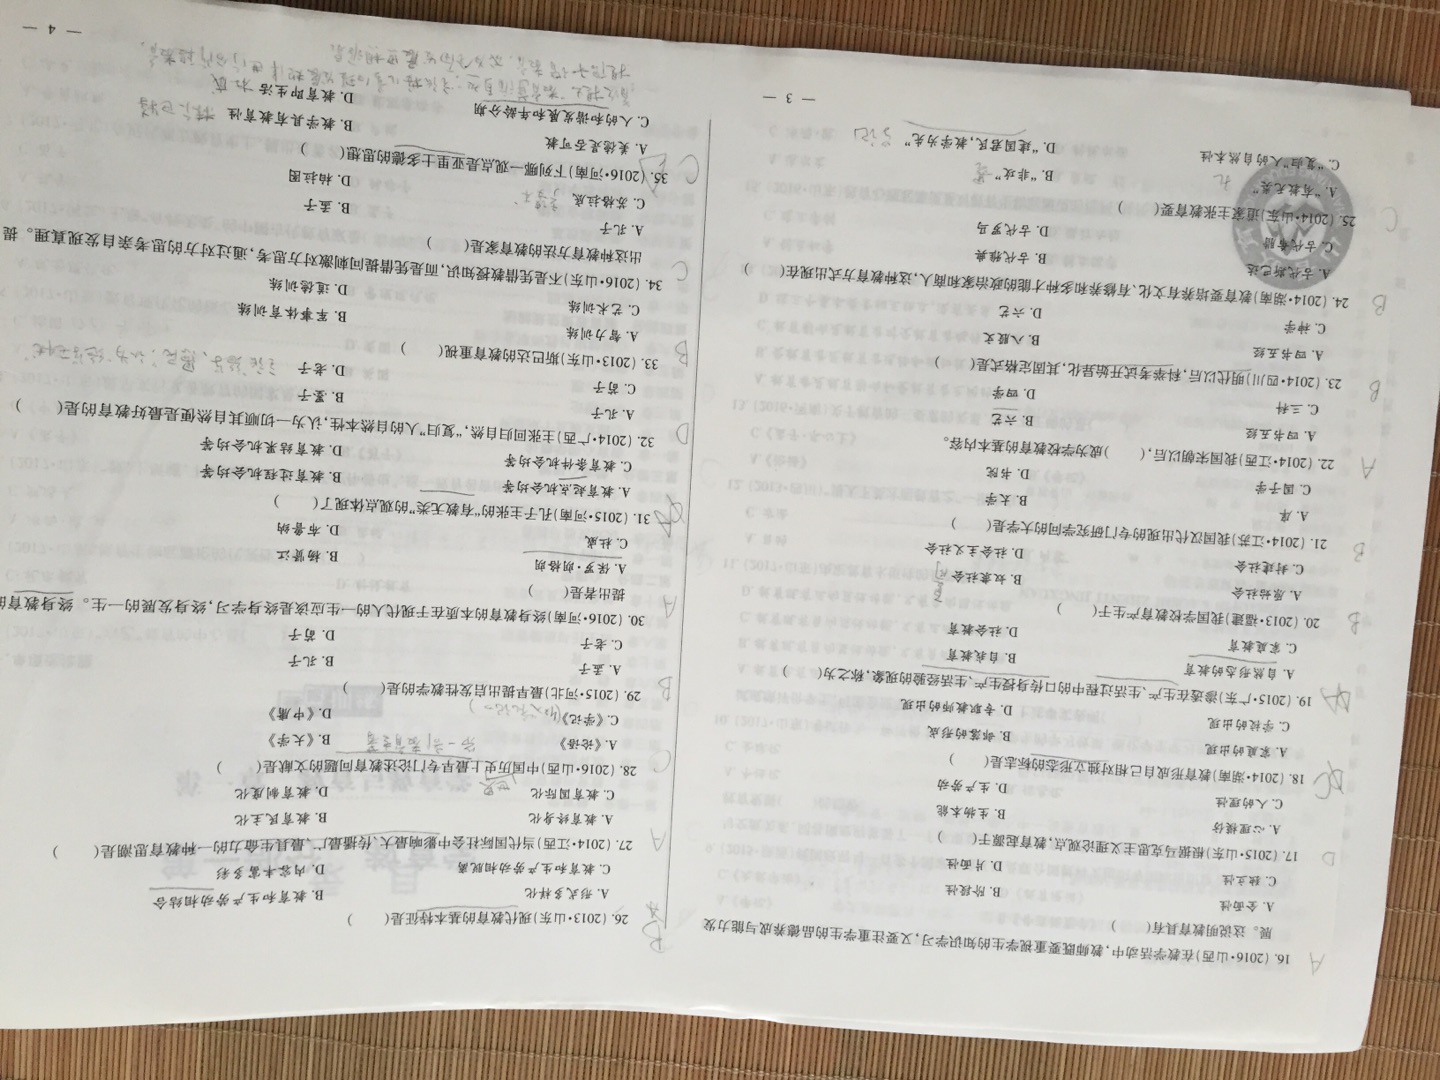 16. (2016·山西)在教学活动中,教师既要重视学生的知识学习,又要注重学生的品德养成与能力发
展。这说明教育具有(　　)
A. 全面性　B. 阶段性
C. 独立性　D. 片面性
17. (2015·山东)根据马克思主义理论观点,教育起源于(　　)
A. 心理模仿　B. 生物本能
C. 人的理性　D. 生产劳动
18. (2014·湖南)教育形成自己相对独立形态的标志是(　　)
A. 家庭的出现　B. 部落的形成
C. 学校的出现　D. 专职教师的出现
19. (2015·广东)渗透在生产、生活过程中的口传身授生产、生活经验的现象,称之为(　　)
A. 自然形态的教育　B. 自我教育
C. 家庭教育　D. 社会教育
20. (2013·福建)我国学校教育产生于(　　)
A. 原始社会　B. 奴隶社会
C. 封建社会　D. 社会主义社会
21. (2014·江苏)我国汉代出现的专门研究学问的大学是(　　)
A. 庠　B. 太学
C. 国子学　D. 书院
22. (2014·江西)我国宋朝以后,(　　)成为学校教育的基本内容。
A. 四书五经　B. 六艺
C. 三科　D. 四学
23. (2014·四川)明代以后,科举考试开始异化,其固定格式是(　　)
A. 四书五经　B. 八股文
C. 神学　D. 六艺
24. (2014·湖南)教育要培养有文化、有修养和多种才能的政治家和商人,这种教育方式出现在(　　)
A. 古代斯巴达　B. 古代雅典
C. 古代希腊　D. 古代罗马
25. (2014·山东)道家主张教育要(　　)
A. “有教无类”　B. “非攻”
C. “复归”人的自然本性　D. “建国君民,教学为先”
— 3 —
26. (2013·山东)现代教育的基本特征是(　　)
A. 形式多样化　B. 教育和生产劳动相结合
C. 教育和生产劳动相脱离　D. 内容丰富多彩
27. (2014·江西)当代国际社会中影响最大、传播最广、最具生命力的一种教育思潮是(　　)
A. 教育终身化　B. 教育民主化
C. 教育国际化　D. 教育制度化
28. (2016·山西)中国历史上最早专门论述教育问题的文献是(　　)
A.《论语》　B.《大学》
C.《学记》　D.《中庸》
29. (2015·河北)最早提出启发性教学的是(　　)
A. 孟子　B. 孔子
C. 老子　D. 荀子
30. (2016·河南)终身教育的本质在于现代人的一生应该是终身学习,终身发展的一生。终身教育的
提出者是(　　)
A. 保罗·朗格朗　B. 杨贤江
C. 杜威　D. 布鲁纳
31. (2015·河南)孔子主张的“有教无类”的观点体现了(　　)
A. 教育起点机会均等　B. 教育过程机会均等
C. 教育条件机会均等　D. 教育结果机会均等
32. (2014·广西)主张回归自然,“复归”人的自然本性,认为一切顺其自然便是最好教育的是(　　)
A. 孔子　B. 墨子
C. 荀子　D. 老子
33. (2013·山东)斯巴达的教育重视(　　)
A. 智力训练　B. 军事体育训练
C. 艺术训练　D. 道德训练
34. (2016·山东)不是凭借教授知识,而是凭借提问刺激对方思考,通过对方的思考亲自发现真理。提
出这种教育方法的教育家是(　　)
A. 孔子　B. 孟子
C. 苏格拉底　D. 柏拉图
35. (2016·河南)下列哪一观点是亚里士多德的思想(　　)
A. 美德是否可教　B. 教学具有教育性
C. 人的和谐发展和年龄分期　D. 教育即生活
— 4 —